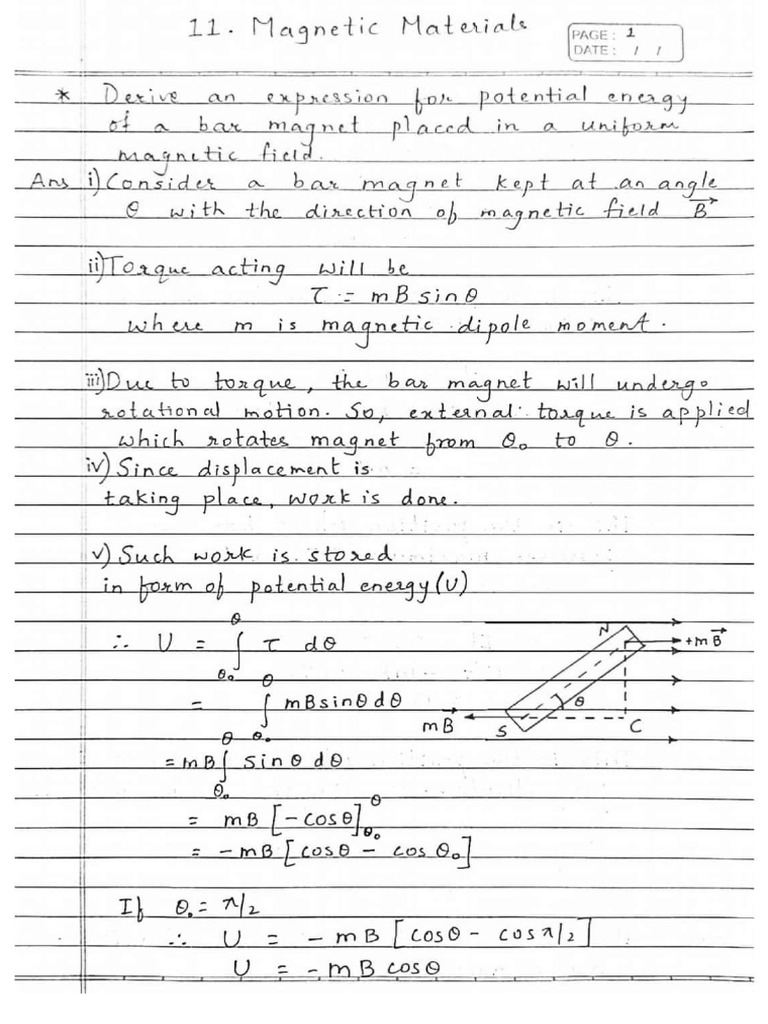 11. Magnetic Materials
PAGE: 1
DATE: / /
* Derive an expression for potential energy
of a bar magnet placed in a uniform
magnetic field.
Ans i) Consider a bar magnet kept at an angle
θ with the direction of magnetic field B⃗
ii) Torque acting will be
τ = mB sinθ
where m is magnetic dipole moment.
iii) Due to torque, the bar magnet will undergo
rotational motion. So, external torque is applied
which rotates magnet from θ₀ to θ.
iv) Since displacement is
taking place, work is done.
v) Such work is stored
in form of potential energy (U)
∴ U = ∫_θ₀^θ τ dθ
= ∫_θ₀^θ mB sinθ dθ
= mB ∫_θ₀^θ sinθ dθ
= mB [-cosθ]_θ₀^θ
= -mB [cosθ - cosθ₀]
N
+mB⃗
θ
mB⃗
S
C
If θ₀ = π/2
∴ U = -mB [cosθ - cosπ/2]
U = -mB cosθ